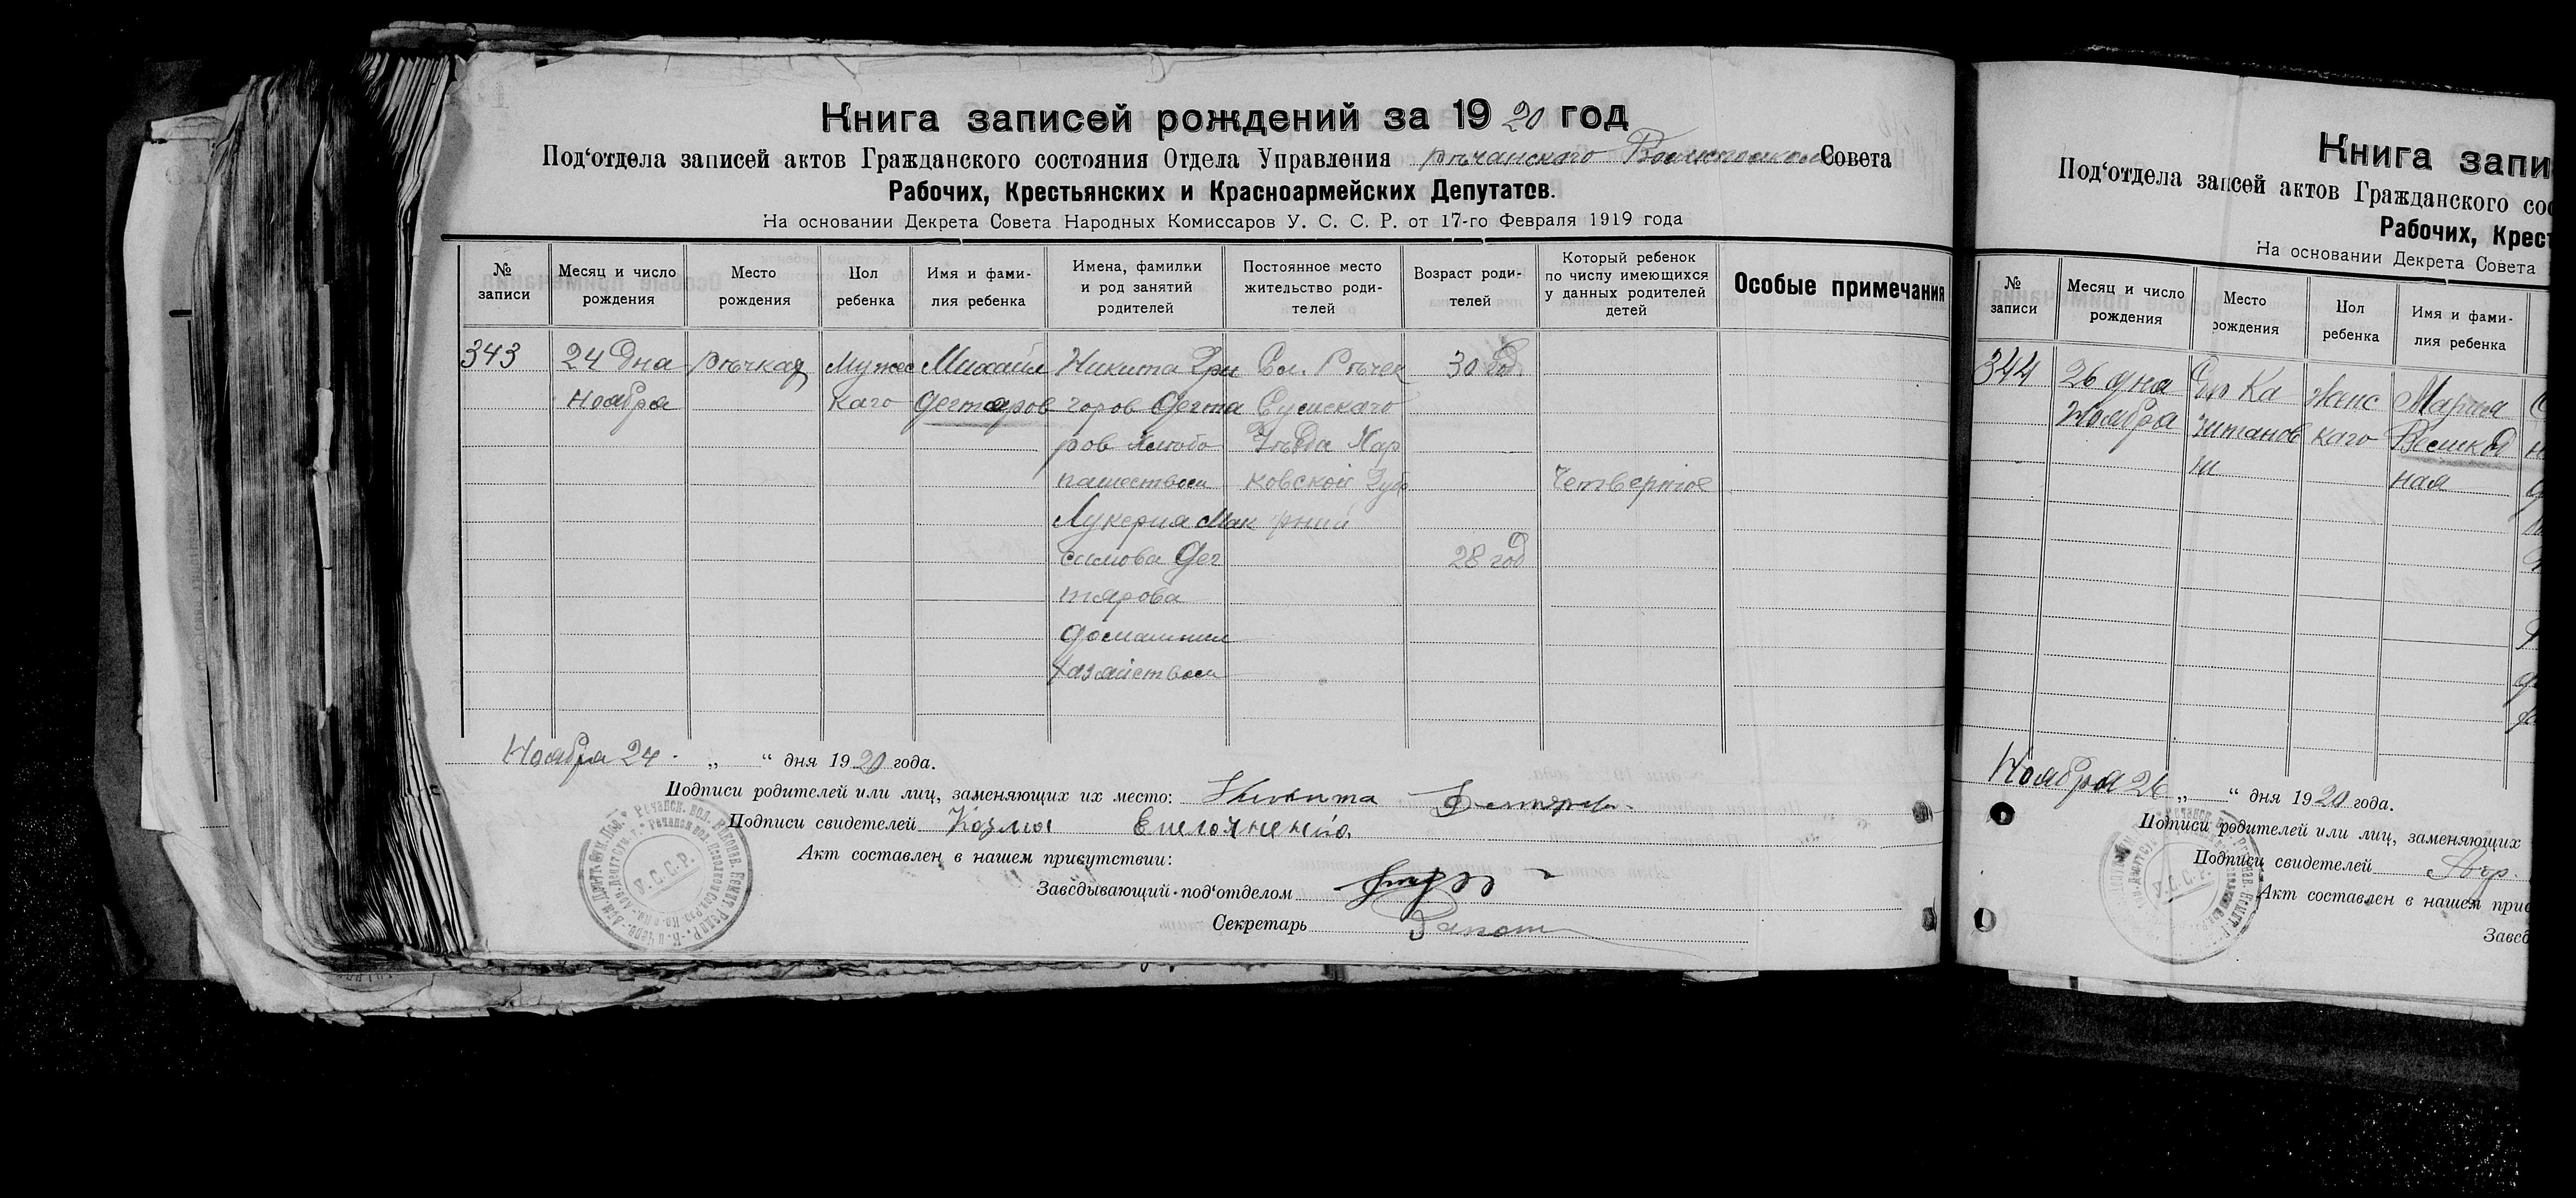 Книга записей рождений за 1920 год
Под‘отдела записей актов Гражданского состояния Отдела Управления Рѣчанского Совета
Рабочих, Крестьянских и Красноармейских Депутатов.
На основании Декрета Совета Народных Комиссаров У. С. С. Р. от 17-го Февраля 1919 года
№ записи
Месяц и число рождения
Место рождения
Пол ребенка
Имя и фами-лия ребенка
Имена, фамилии и род занятий родителей
Постоянное место жительство роди-телей
Возраст роди-телей
Который ребенок по числу имеющихся у данных родителей детей
Особые примечания
343
24 дня
Ноября
Рѣчкая
Мужес
каго
Михаил
Дегтяров
Никита Гри
горов Дегтя
ров Хлебо
пашеством
Лукерия Мак
симова Дег
тярова
домашним
хазяйством
Сл. Рѣчек
Сумскаго
Уѣзда Хар
ковской Губе
рнии
30 год
28 год
Четвертое
Ноября 24 „ “ дня 1920 года.
Подписи родителей или лиц, заменяющих их место: Никита
Подписи свидетелей Козма
Акт составлен в нашем присутствии:
Заведывающий под‘отделом
Секретарь
У.С.С.Р.
Книга запи
Под‘отдела записей актов Гражданского сос
Рабочих, Крест
На основании Декрета Совета
№ записи
Месяц и число рождения
Место рождения
Пол ребенка
Имя и фами-лия ребенка
344
26 дня
Ноября
Ка
Женс
каго
Мария
ная
Ноября 26 „ “ дня 1920 года.
Подписи родителей или лиц, заменяющих
Подписи свидетелей
Акт составлен в нашем прис
Завед
У.С.С.Р.